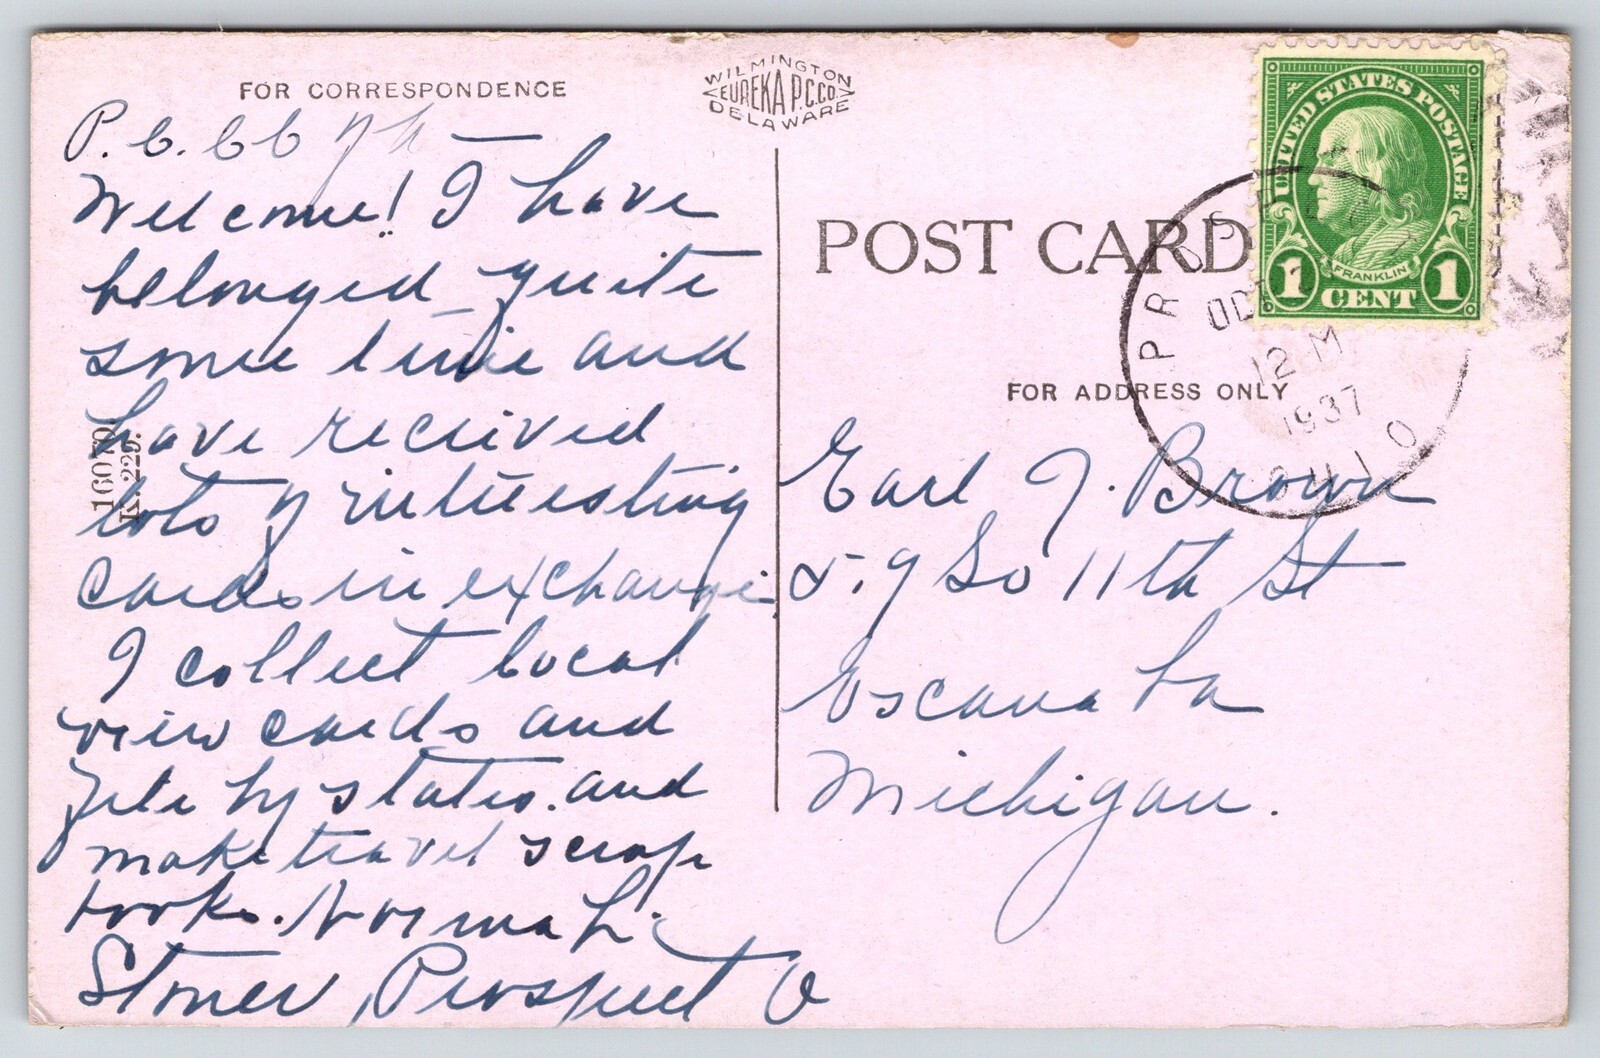 FOR CORRESPONDENCE
WILMINGTON
EUREKA P.C.CO.
DELAWARE
P.C.
Welcome! I have
belonged quite
some time and
have received
lots of interesting
cards in exchange.
I collect local
view cards and
file by states. and
make travel scrap
books. Norma L.
Stoner, Prospect O
16070
K. 229.
POST CARD
UNITED STATES POSTAGE
FRANKLIN
1 CENT 1
PROSPECT
OCT
12 M
1937
OHIO
FOR ADDRESS ONLY
Earl J. Brown
So 11th St
Escanaba
Michigan.